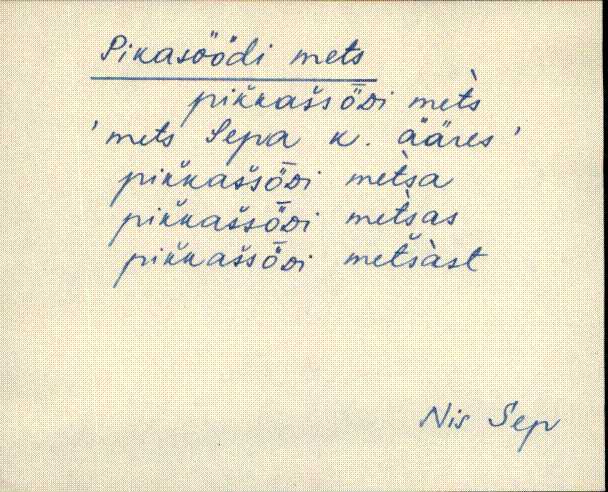 Pikasöödi mets
pik̆kas̆sȫᴅi mèts
'mets Sepa k. ääres'
pik̆kas̆sȫᴅi mètsa
pik̆kas̆sȫᴅi mètsas
pik̆kas̆sȫᴅi mets̆àst
Nis Sep